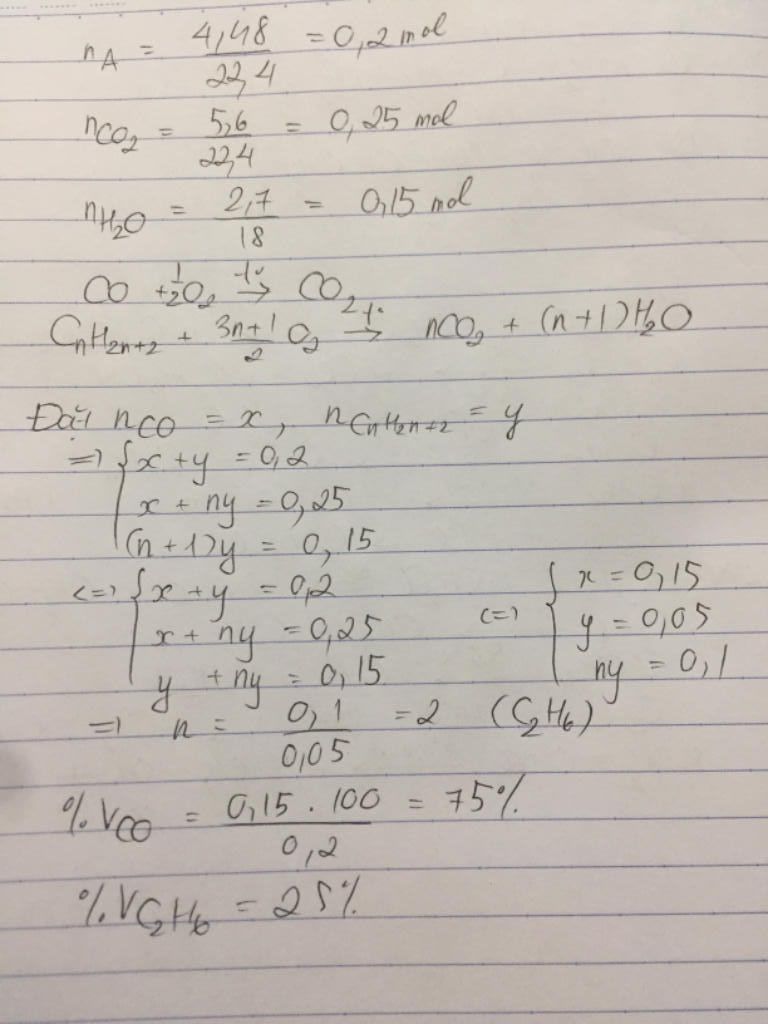 nA = 4,48/22,4 = 0,2 mol
nCO2 = 5,6/22,4 = 0,25 mol
nH2O = 2,7/18 = 0,15 mol
CO + 1/2 O2 -t°-> CO2
CnH2n+2 + (3n+1)/2 O2 -t°-> nCO2 + (n+1)H2O
Đặt nCO = x, nCnH2n+2 = y
=> { x + y = 0,2
x + ny = 0,25
(n+1)y = 0,15
<=> { x + y = 0,2
x + ny = 0,25
y + ny = 0,15
<=> { x = 0,15
y = 0,05
ny = 0,1
=> n = 0,1/0,05 = 2 (C2H6)
%VCO = 0,15 . 100/0,2 = 75%
%VC2H6 = 25%